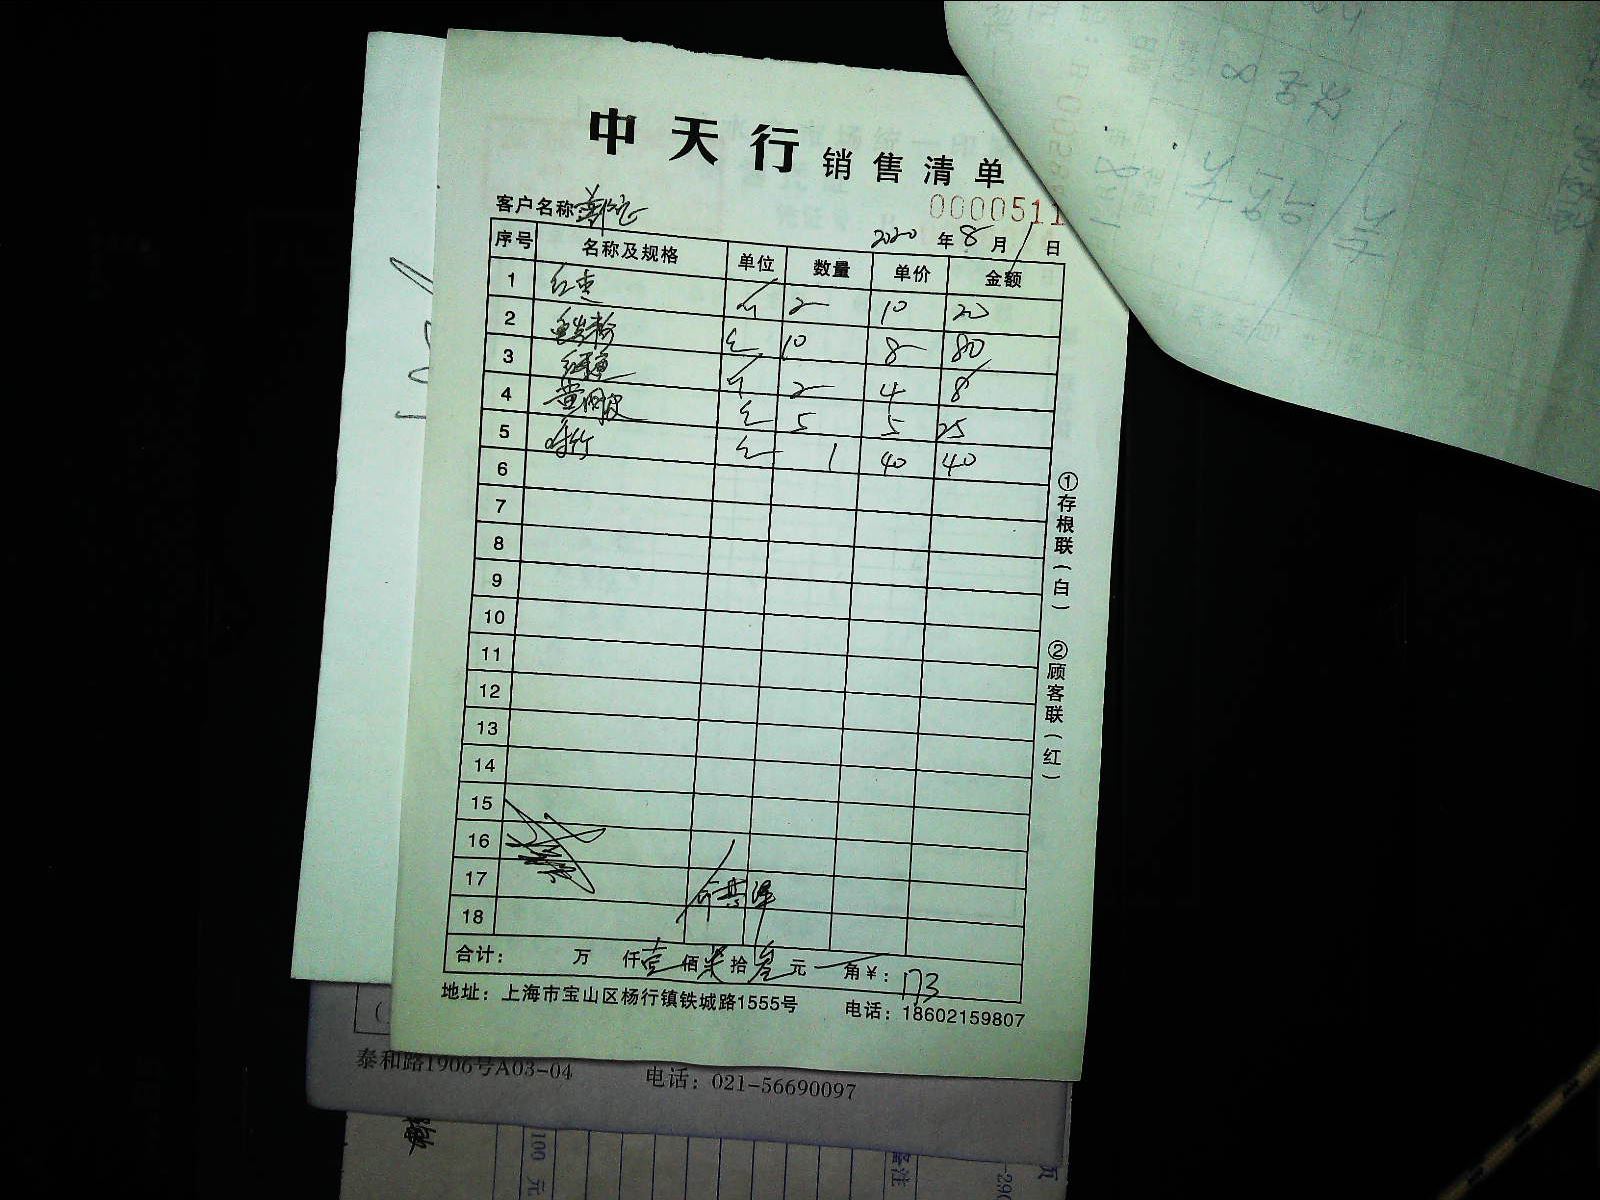 中天行 销售清单
客户名称
0000511
2020 年 8 月 1 日
序号 名称及规格 单位 数量 单价 金额
1 红枣 2 10 20
2 10 8 80
3 2 4 8
4 5 5 25
5 1 40 40
6
7
8
9
10
11
12
13
14
15
16
17
18
合计： 万 仟 壹 佰 柒 拾 叁 元 角 ￥：173
地址：上海市宝山区杨行镇铁城路1555号 电话：18602159807
①存根联（白） ②顾客联（红）
泰和路1906号A03-04 电话：021-56690097
100 元